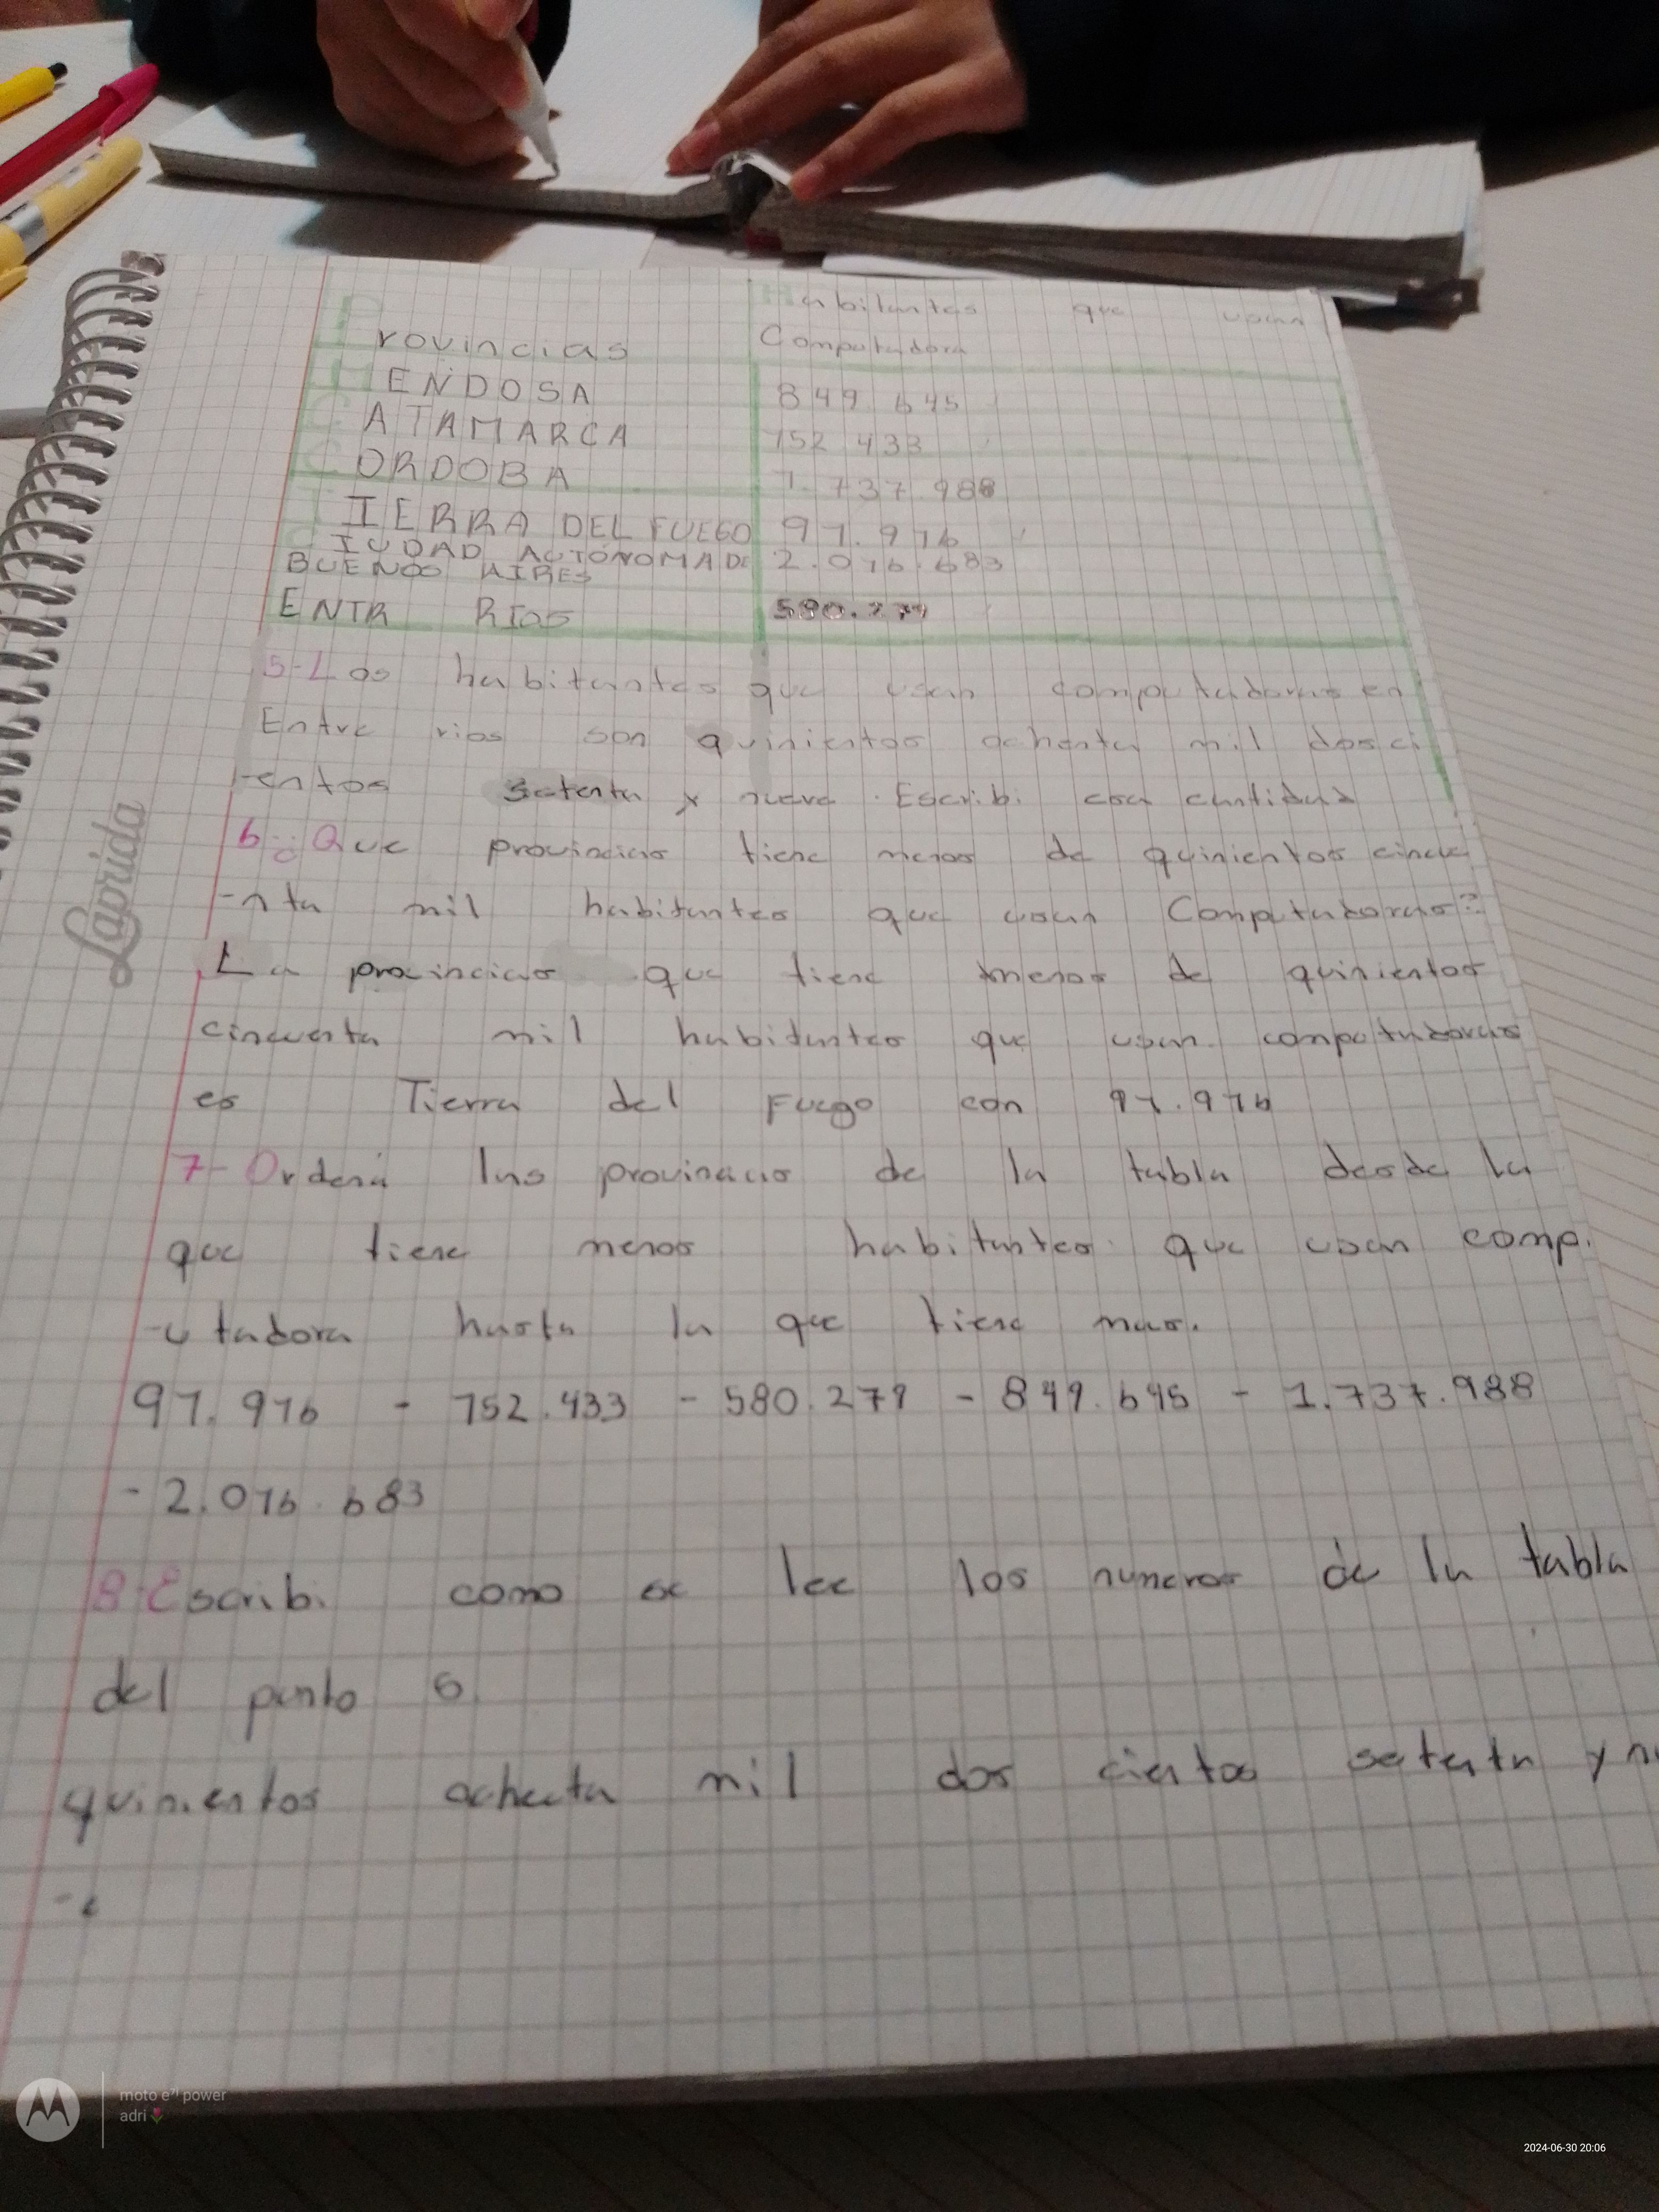 Habitantes que usan
Provincias Computadora
MENDOSA 849.645
CATAMARCA 152.433
CORDOBA 1.737.988
TIERRA DEL FUEGO 97.976
CIUDAD AUTÓNOMA DE 2.076.683
BUENOS AIRES
ENTR RIOS 580.279
5-Los habitantes que usan computadoras en
Entre rios son quinientos ochenta mil dosci
-entos setenta y nueve. Escribi esa cantidad
6-¿Que provincias tiene menos de quinientos cincue
-nta mil habitantes que usan Computadoras?
La provincias que tiene menos de quinientos
cincuenta mil habitantes que usan computadoras
es Tierra del Fuego con 97.976
7-Ordená las provincias de la tabla desde la
que tiene menos habitantes que usan comp.
-utadora hasta la que tiene mas.
97.976 - 152.433 - 580.279 - 849.645 - 1.737.988
- 2.076.683
8-Escribi como se lee los numeros de la tabla
del punto 6
quinientos ochenta mil dos cientos setenta y nu
Laprida
moto e⁷ⁱ power
adri🌷
2024-06-30 20:06